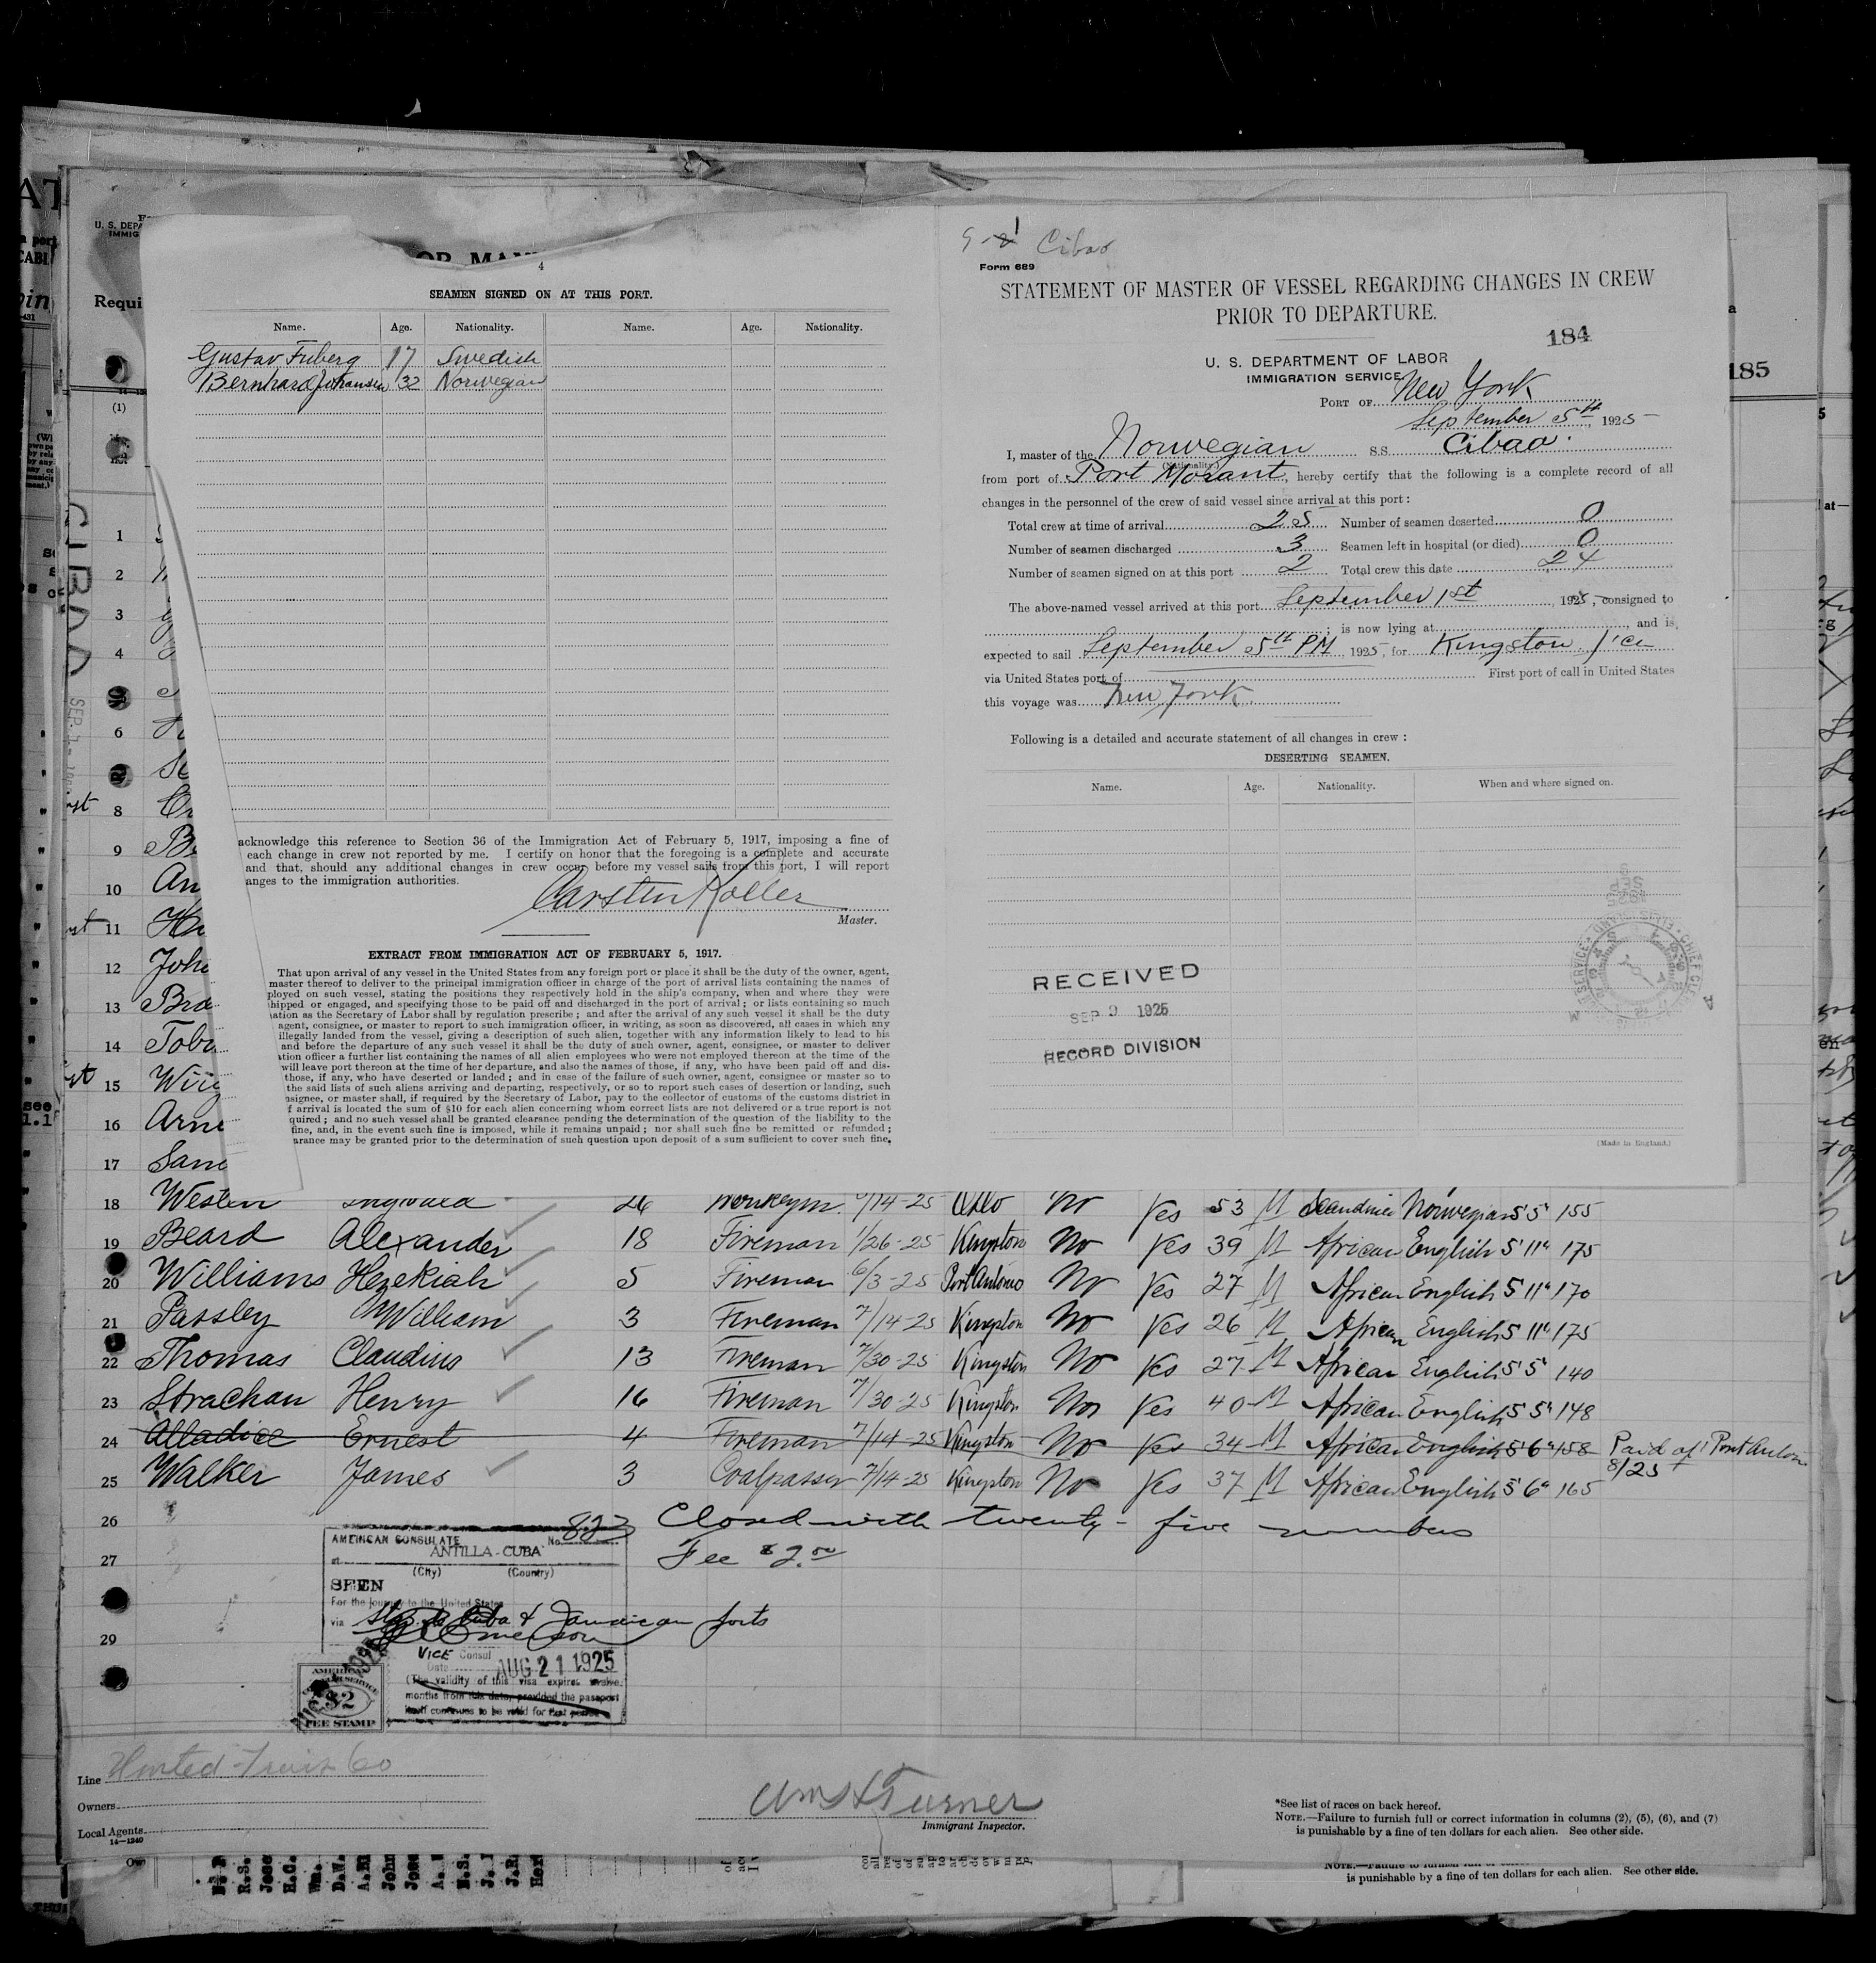 4
SEAMEN SIGNED ON AT THIS PORT.
Name. Age. Nationality. Name. Age. Nationality.
Gustav Friberg 17 Swedish
Bernhard Johansen 32 Norwegian
acknowledge this reference to Section 36 of the Immigration Act of February 5, 1917, imposing a fine of
each change in crew not reported by me. I certify on honor that the foregoing is a complete and accurate
and that, should any additional changes in crew occur before my vessel sails from this port, I will report
anges to the immigration authorities.
Carsten Koller
Master.
EXTRACT FROM IMMIGRATION ACT OF FEBRUARY 5, 1917.
That upon arrival of any vessel in the United States from any foreign port or place it shall be the duty of the owner, agent,
master thereof to deliver to the principal immigration officer in charge of the port of arrival lists containing the names of
ployed on such vessel, stating the positions they respectively hold in the ship's company, when and where they were
hipped or engaged, and specifying those to be paid off and discharged in the port of arrival; or lists containing so much
ation as the Secretary of Labor shall by regulation prescribe; and after the arrival of any such vessel it shall be the duty
agent, consignee, or master to report to such immigration officer, in writing, as soon as discovered, all cases in which any
illegally landed from the vessel, giving a description of such alien, together with any information likely to lead to his
and before the departure of any such vessel it shall be the duty of such owner, agent, consignee, or master to deliver
tion officer a further list containing the names of all alien employees who were not employed thereon at the time of the
will leave port thereon at the time of her departure, and also the names of those, if any, who have been paid off and dis-
those, if any, who have deserted or landed; and in case of the failure of such owner, agent, consignee or master so to
the said lists of such aliens arriving and departing, respectively, or so to report such cases of desertion or landing, such
nsignee, or master shall, if required by the Secretary of Labor, pay to the collector of customs of the customs district in
f arrival is located the sum of $10 for each alien concerning whom correct lists are not delivered or a true report is not
quired; and no such vessel shall be granted clearance pending the determination of the question of the liability to the
fine, and, in the event such fine is imposed, while it remains unpaid; nor shall such fine be remitted or refunded;
arance may be granted prior to the determination of such question upon deposit of a sum sufficient to cover such fine.
Cibao
Form 689
STATEMENT OF MASTER OF VESSEL REGARDING CHANGES IN CREW
PRIOR TO DEPARTURE.
184
U. S. DEPARTMENT OF LABOR
IMMIGRATION SERVICE
PORT OF New York
September 5th, 1925
I, master of the Norwegian S.S. Cibao.
(Nationality.)
from port of Port Morant, hereby certify that the following is a complete record of all
changes in the personnel of the crew of said vessel since arrival at this port:
Total crew at time of arrival 25 Number of seamen deserted 0
Number of seamen discharged 3 Seamen left in hospital (or died) 0
Number of seamen signed on at this port 2 Total crew this date 24
The above-named vessel arrived at this port September 1st, 1925, consigned to
; is now lying at , and is
expected to sail September 5th PM, 1925, for Kingston J'ca
via United States port of First port of call in United States
this voyage was New York.
Following is a detailed and accurate statement of all changes in crew:
DESERTING SEAMEN.
Name. Age. Nationality. When and where signed on.
RECEIVED
SEP 9 1925
RECORD DIVISION
(Made in England.)
185
U. S. DEPA
IMMIG
Requi
(1)
CIBAO
1
2
3
4
6
8
9
10 An
11
12 Joh
13 Bra
14 Tobi
15
16 Arn
17 Sam
18 Westen Ingvald 26 Oslo No Yes 53 M Scandinav Norwegian 5'5" 155
19 Beard Alexander 18 Fireman 1/26-25 Kingston No Yes 39 M African English 5'11" 175
20 Williams Hezekiah 5 Fireman 6/3-25 Port Antonio No Yes 27 M African English 5'11" 170
21 Passley William 3 Fireman 7/14-25 Kingston No Yes 26 M African English 5'11" 175
22 Thomas Claudius 13 Fireman 7/30-25 Kingston No Yes 27 M African English 5'5" 140
23 Strachan Henry 16 Fireman 7/30-25 Kingston No Yes 40 M African English 5'5" 148
24 Alladice Ernest 4 Fireman 7/14-25 Kingston No Yes 34 M African English 5'6" 158 Paid off Port Antonio
8/25
25 Walker James 3 Coalpasser 7/14-25 Kingston No Yes 37 M African English 5'6" 165
26 Closed with twenty-five numbers
27 Fee $2.00
29
AMERICAN CONSULATE No. 823
at ANTILLA - CUBA
(City) (Country)
SEEN
For the journey to the United States
via Cuba & Jamaican ports
VICE Consul
Date AUG 21 1925
(The validity of this visa expires twelve
months from this date, provided the passport
itself continues to be valid for that period.)
AMERICAN
$2
FEE STAMP
Line United Fruit Co
Owners
Local Agents
14-1240
Wm S Turner
Immigrant Inspector.
*See list of races on back hereof.
NOTE.—Failure to furnish full or correct information in columns (2), (5), (6), and (7)
is punishable by a fine of ten dollars for each alien. See other side.
is punishable by a fine of ten dollars for each alien. See other side.